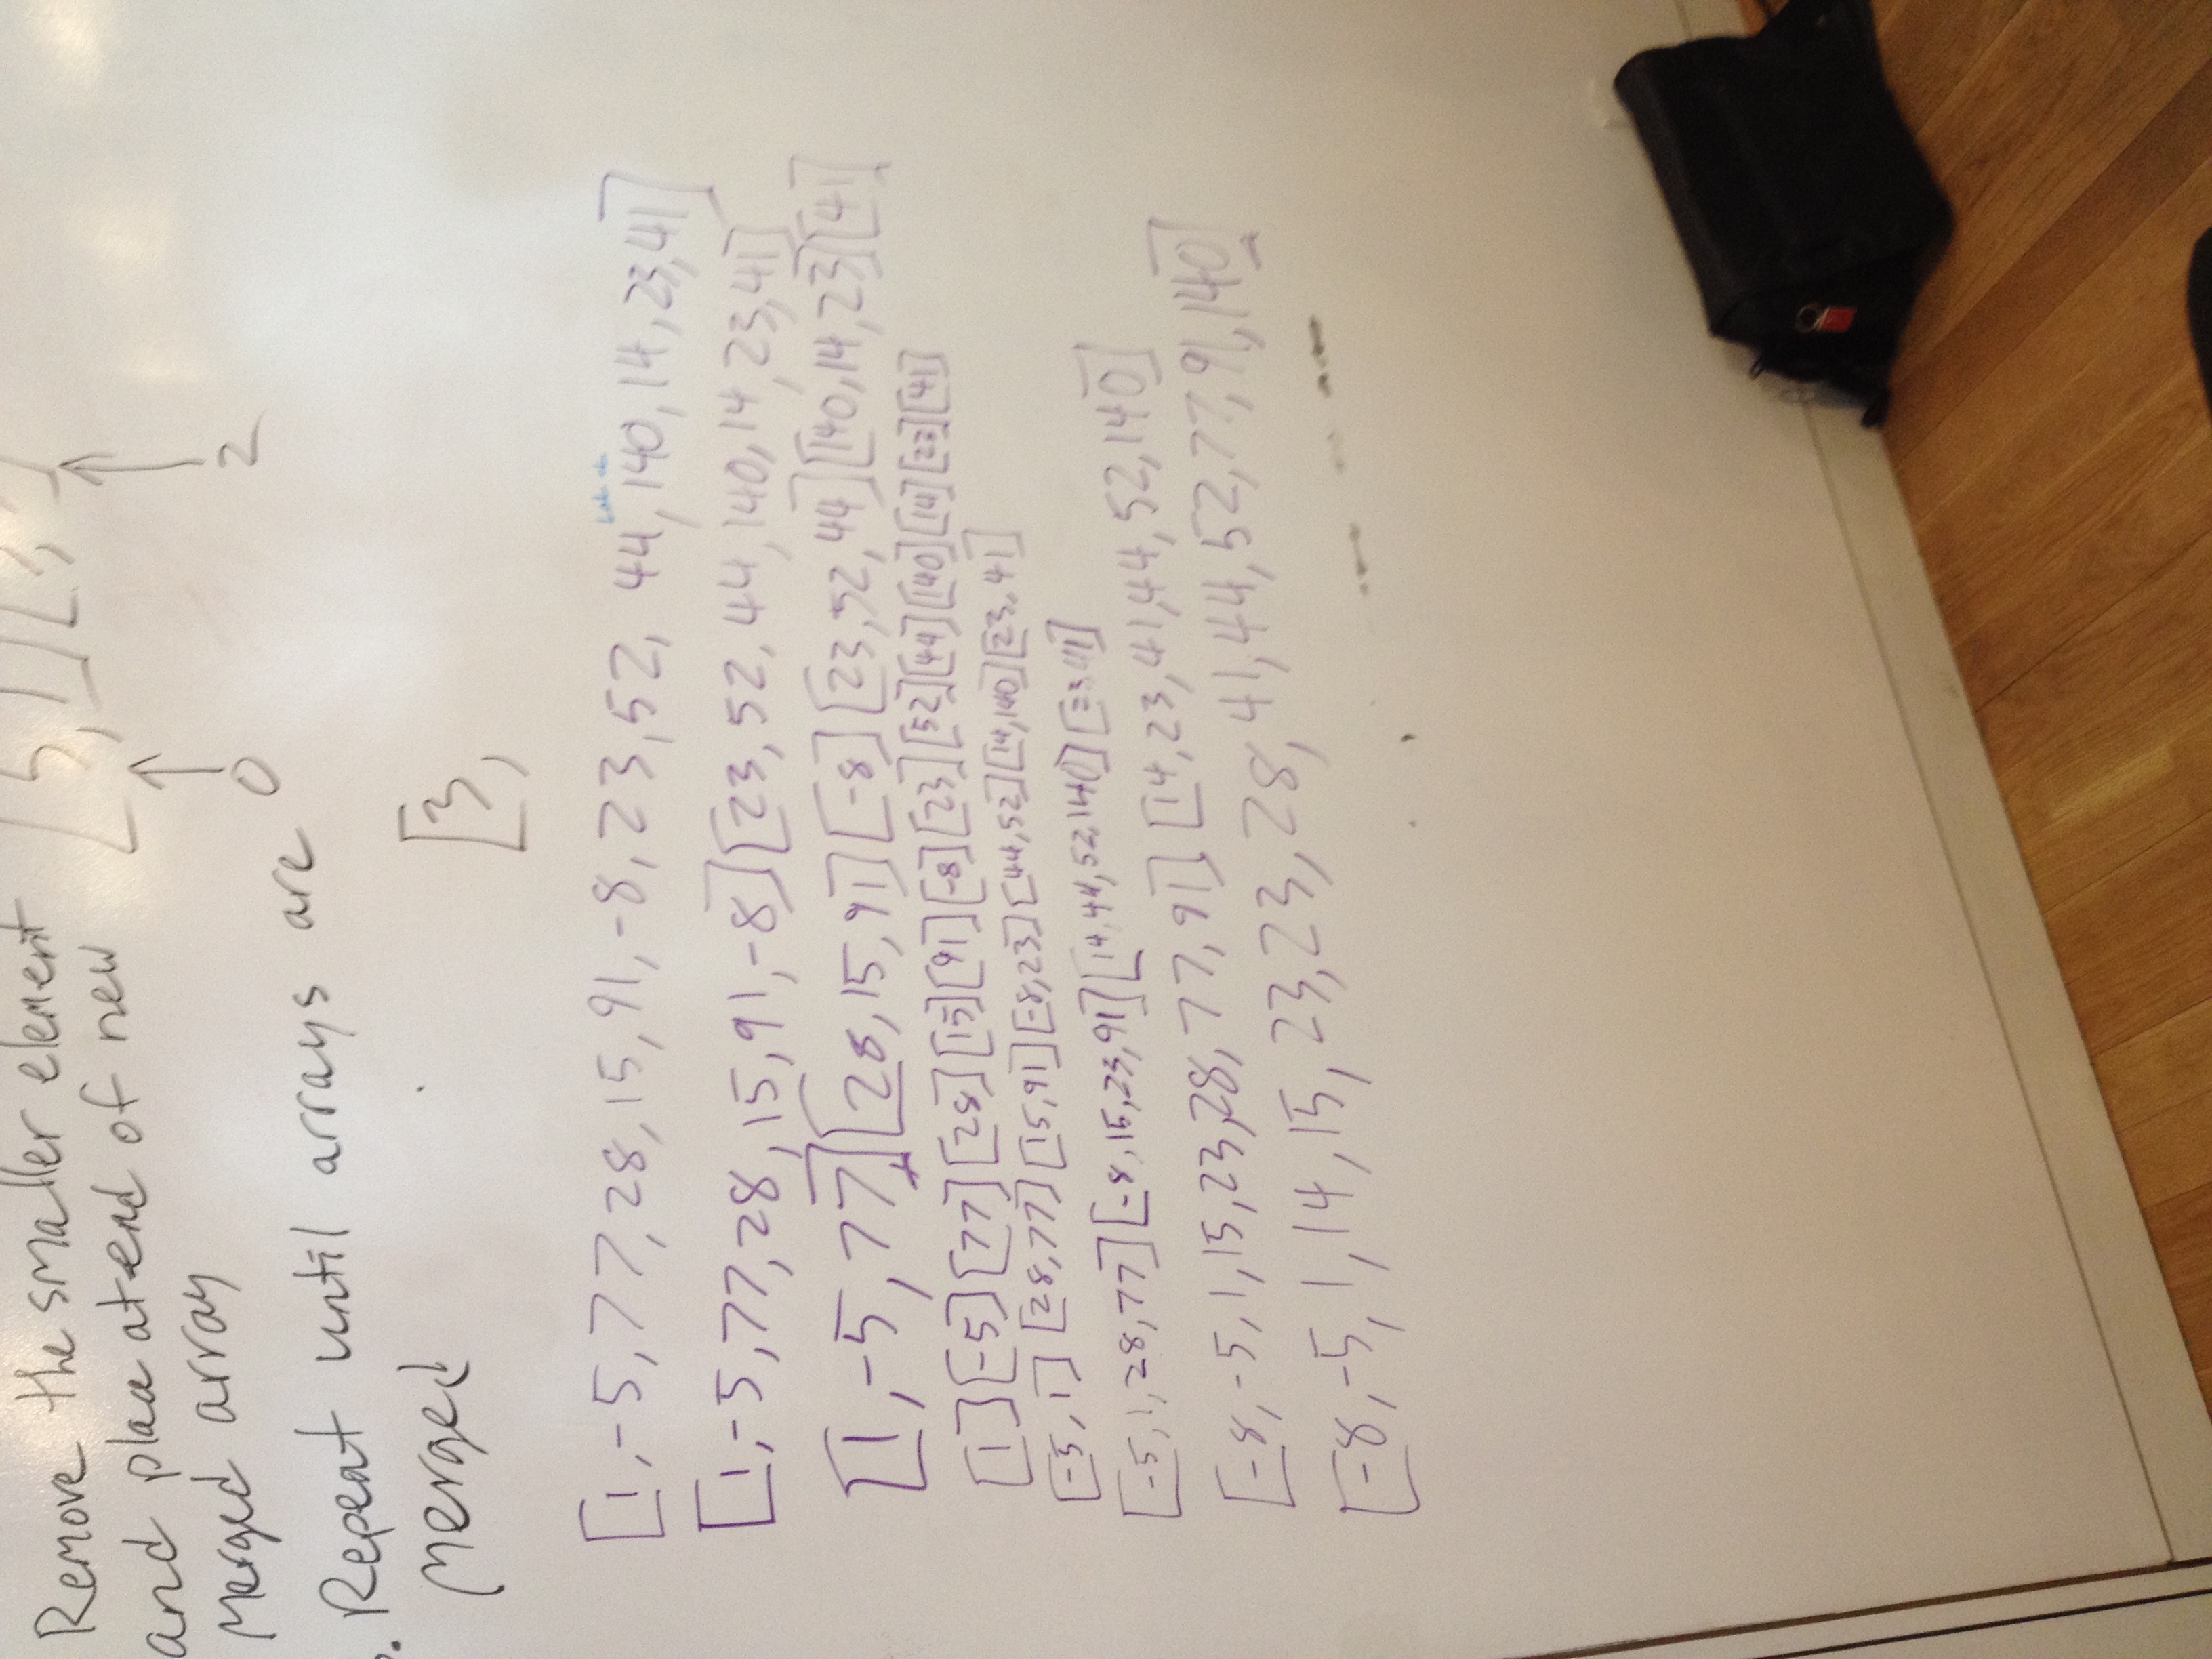 Remove the smaller element
and place at end of new
Merged array
0
2
. Repeat until arrays are
Merged
[3,
[1,-5,77,28,15,91,-8,23,52, 44,140,14,23,41]
[1,-5,77,28,15,91,-8][23,52,44,140,14,23,41]
[1,-5,77,][28,15,91][-8][23,52,44][140,14,23][41]
[1][-5][77][28][15][91][-8][23][52][44][140][14][23][41]
[-5,1][28,77][15,91][-8,23][44,52][14,140][23,41]
[-5,1,28,77][-8,15,23,91][14,44,52,140][23,41]
[-8,-5,1,15,23,28,77,91][14,23,41,44,52,140]
[-8,-5,1,14,15,23,23,28,41,44,52,77,91,140]